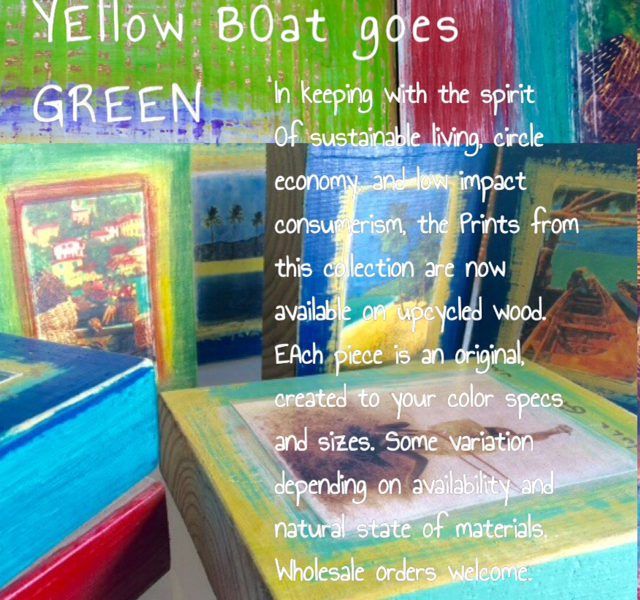 YEllow BOat goes
GREEN
In keeping with the spirit
Of sustainable living, circle
economy, and low impact
consumerism, the Prints from
this collection are now
available on upcycled wood.
EAch piece is an original,
created to your color specs
and sizes. Some variation
depending on availability and
natural state of materials,
Wholesale orders welcome: